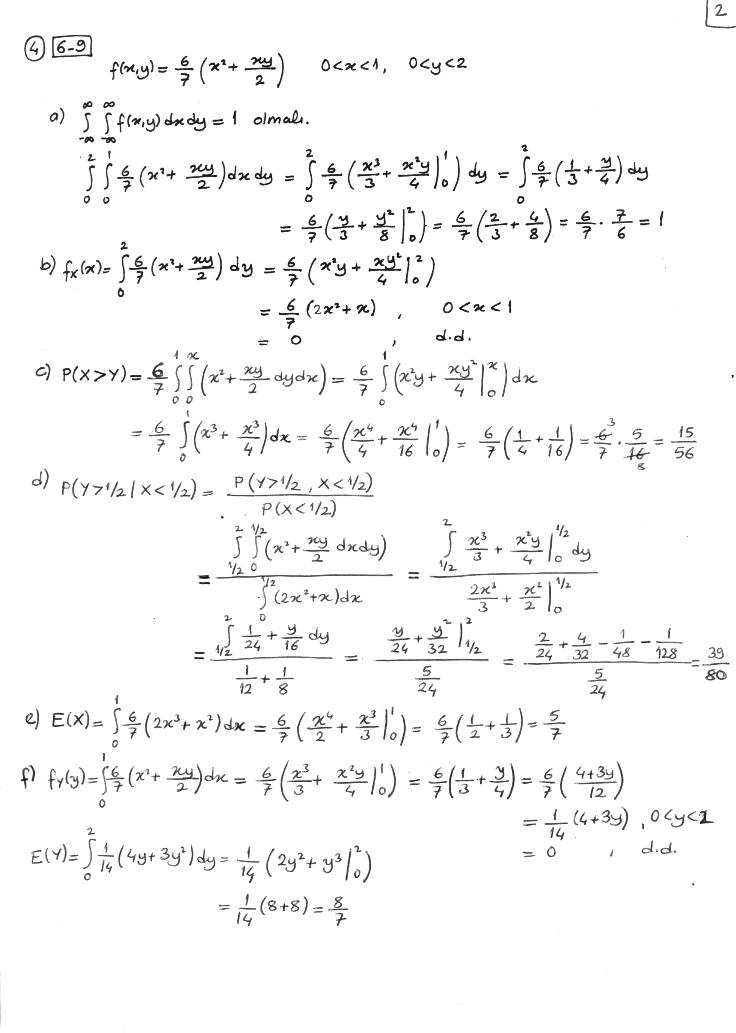 2
④ 6-9
f(x,y) = 6/7 (x² + xy/2)   0<x<1, 0<y<2
a) ∫_{-∞}^{∞} ∫_{-∞}^{∞} f(x,y) dx dy = 1 olmalı.
∫_0^2 ∫_0^1 6/7 (x² + xy/2) dx dy = ∫_0^2 6/7 (x³/3 + x²y/4 |_0^1) dy = ∫_0^2 6/7 (1/3 + y/4) dy
= 6/7 (y/3 + y²/8 |_0^2) = 6/7 (2/3 + 4/8) = 6/7 · 7/6 = 1
b) fx(x) = ∫_0^2 6/7 (x² + xy/2) dy = 6/7 (x²y + xy²/4 |_0^2)
= 6/7 (2x² + x) , 0<x<1
= 0 , d.d.
c) P(X>Y) = 6/7 ∫_0^1 ∫_0^x (x² + xy/2 dydx) = 6/7 ∫_0^1 (x²y + xy²/4 |_0^x) dx
= 6/7 ∫_0^1 (x³ + x³/4) dx = 6/7 (x⁴/4 + x⁴/16 |_0^1) = 6/7 (1/4 + 1/16) = 6/7 3 · 5/16 8 = 15/56
d) P(Y>1/2 | X<1/2) = P(Y>1/2, X<1/2) / P(X<1/2)
= ∫_{1/2}^2 ∫_0^{1/2} (x² + xy/2 dxdy) / ∫_0^{1/2} (2x²+x)dx = ∫_{1/2}^2 x³/3 + x²y/4 |_0^{1/2} dy / 2x³/3 + x²/2 |_0^{1/2}
= ∫_{1/2}^2 1/24 + y/16 dy / 1/12 + 1/8 = y/24 + y²/32 |_{1/2}^2 / 5/24 = 2/24 + 4/32 - 1/48 - 1/128 / 5/24 = 39/80
e) E(X) = ∫_0^1 6/7 (2x³ + x²) dx = 6/7 (x⁴/2 + x³/3 |_0^1) = 6/7 (1/2 + 1/3) = 5/7
f) fy(y) = ∫_0^1 6/7 (x² + xy/2) dx = 6/7 (x³/3 + x²y/4 |_0^1) = 6/7 (1/3 + y/4) = 6/7 (4+3y/12)
= 1/14 (4+3y) , 0<y<2
= 0 , d.d.
E(Y) = ∫_0^2 1/14 (4y + 3y²) dy = 1/14 (2y² + y³ |_0^2)
= 1/14 (8+8) = 8/7